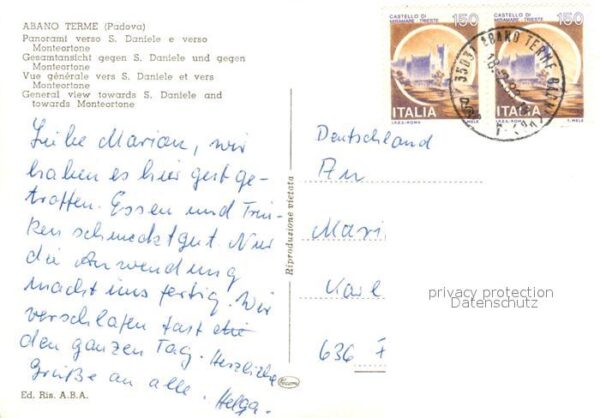 ABANO TERME (Padova)
Panorami verso S. Daniele e verso
Monteortone
Gesamtansicht gegen S. Daniele und gegen
Monteortone
Vue générale vers S. Daniele et vers
Monteortone
General view towards S. Daniele and
towards Monteortone
Liebe Marian, wir
haben es hier gut ge-
troffen. Essen und Trin-
ken schmeckt gut. Nur
die Anwendung
macht uns fertig. Wir
verschlafen fast
den ganzen Tag. Herzliche
Grüße an alle. Helga.
Ed. Ris. A.B.A.
Riproduzione vietata
CASTELLO DI
MIRAMARE TRIESTE
150
ITALIA
I.P.Z.S.-ROMA
E. MELE
CASTELLO DI
MIRAMARE TRIESTE
150
ITALIA
I.P.Z.S.-ROMA
E. MELE
35031 ABANO TERME
Deutschland
An
Mari
Karl
636 F
privacy protection
Datenschutz